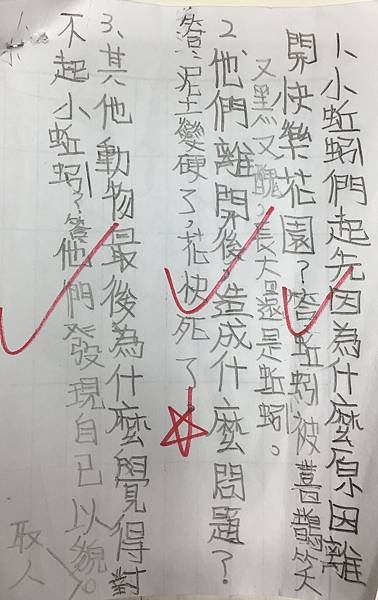 1、小蚯蚓們起先因為什麼原因離
開快樂花園？答蚯蚓被喜鵲笑
又黑又醜，長大還是蚯蚓。
2、他們離開後，造成什麼問題？
答：泥土變硬了，花快死了。
3、其他動物最後為什麼覺得對
不起小蚯蚓？答他們發現自己以貌
取人。